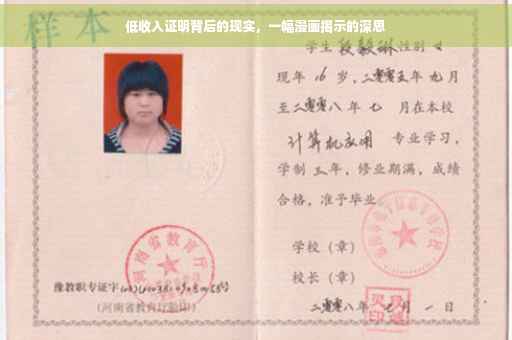 低收入证明背后的现实，一幅漫画揭示的深思
样本
学生段毅琳性别女
现年16岁，二零零五年九月
至二零零八年七月在本校
计算机应用 专业学习，
学制三年，修业期满，成绩
合格，准予毕业。
学校（章）
校长（章）
二零零八年七月一日
河南省教育厅
豫教职专证字
（河南省教育厅验印）